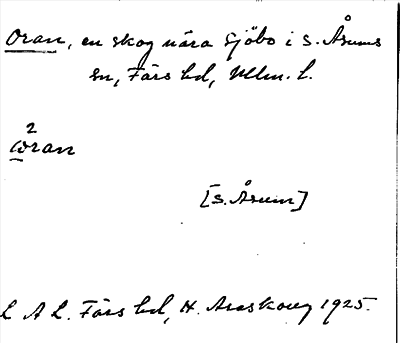 Oran, en skog nära Sjöbo i S. Åsums
sn, Färs hd, Mlm. l.
2
ωran
[S. Åsum]
L A L. Färs hd, H. Areskoug 1925.